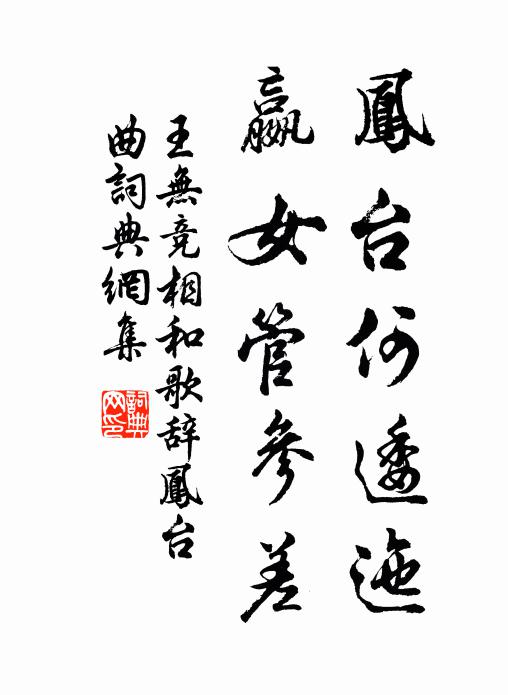 鳳台何逶迤
嬴女管參差
王無竞相和歌辞鳳台
曲詞典網集
詞典网印